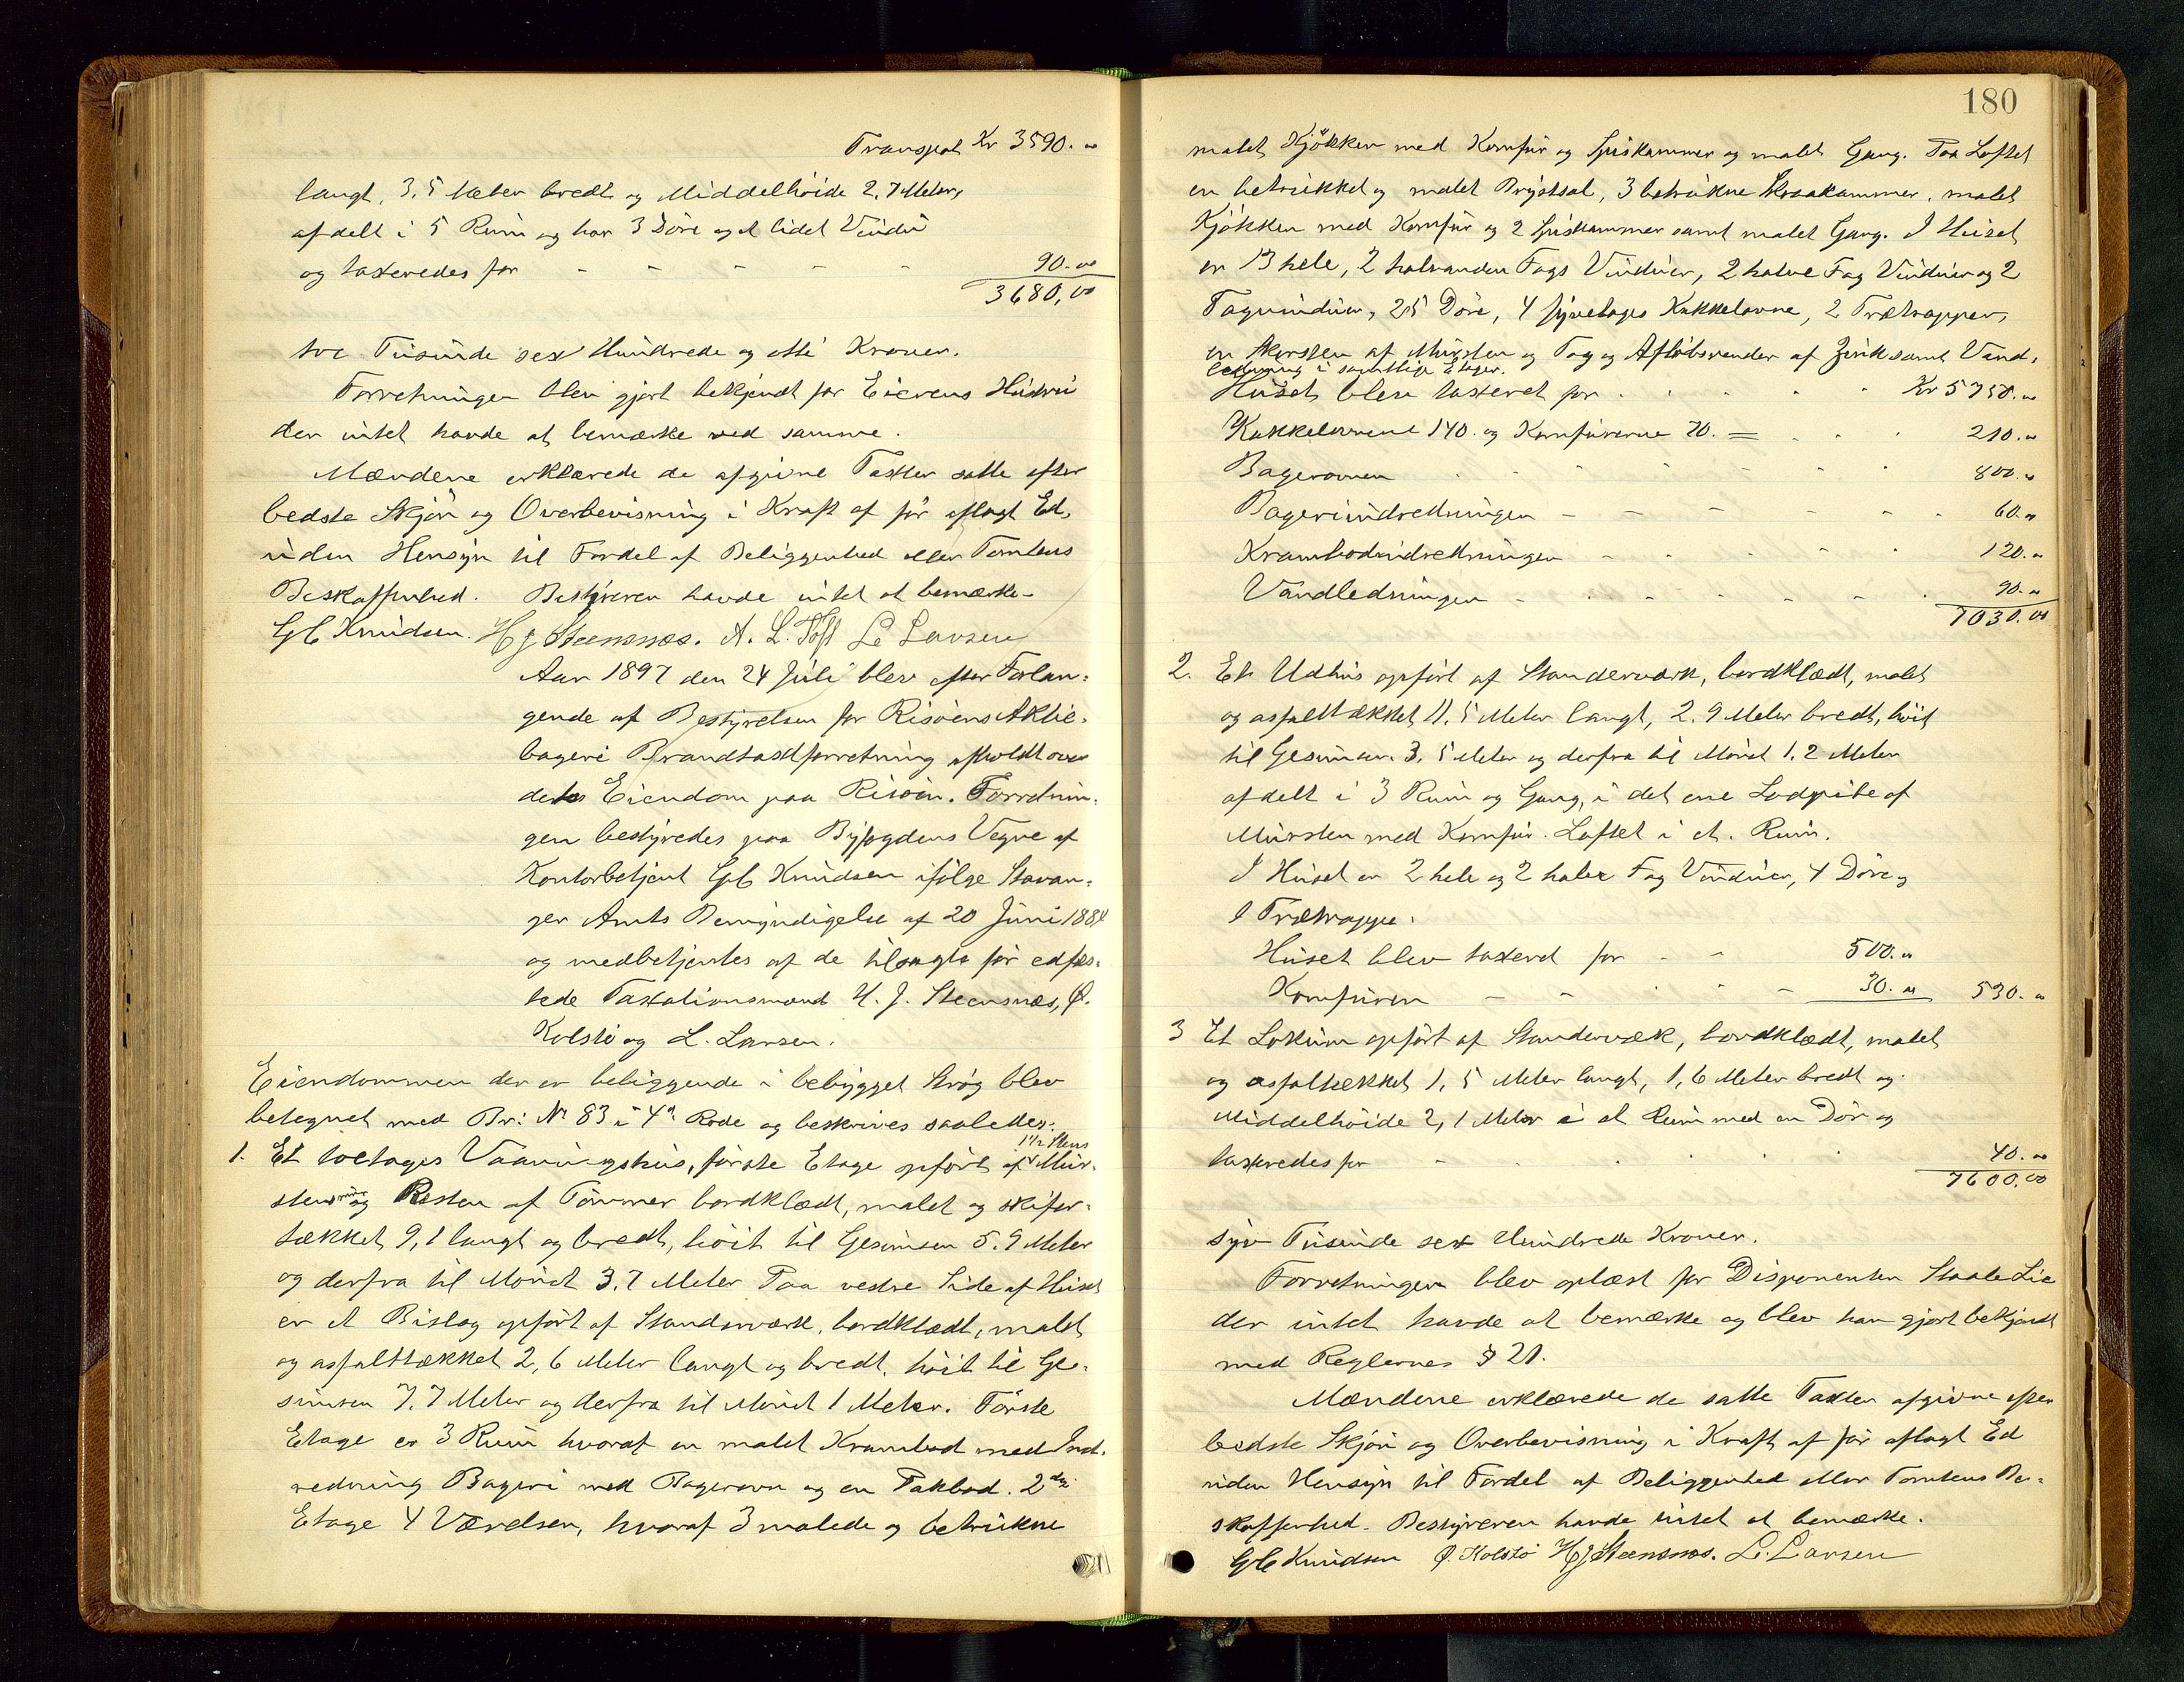 Transport Kr 3590.00
langt, 3,5 Meter bredt og Middelhöide 2,7 Meter,
afdelt i 5 Rum og har 3 Döre og et lidet Vindu
og taxeredes for - - - - - 90.00
3680,00
tre Tusinde sex Hundrede og otti Kroner.
Forretningen blev gjort bekjendt for Eierens Hustru
der intet havde at bemærke ved samme.
Mændene erklærede de afgivne Taxter satte efter
bedste Skjön og Overbevisning i Kraft af för aflagt Ed,
uden Hensyn til Fordel af Beliggenhed eller Tomtens
Beskaffenhed. Bestyreren havde intet at bemærke.
GC Knudsen. HJ Steensnæs. A. L. Toft L. Larsen
Aar 1897 den 24 Juli blev efter Forlan-
gende af Bestyrelsen for Risöens Aktie-
bageri Brandtaxtforretning afholdt over
dettes Eiendom paa Risöen. Forretnin-
gen bestyredes paa Byfogdens Vegne af
Kontorbetjent GC Knudsen ifölge Stavan-
ger Amts Bemyndigelse af 20 Juni 1884
og medbetjentes af de tilsagte för edfæs-
tede Taxationsmænd H. J. Steensnæs, O.
Kolstö og L. Larsen.
Eiendommen der er beliggende i bebygget Strög blev
betegnet med Br: No 83 i 4de Rode og beskrives saaledes:
1. Et toetages Vaaningshus, förste Etage opfört af 1 1/2 Stens Mur-
stensmur og Resten af Tömmer bordklædt, malet og skifer-
tækket 9,1 langt og bredt, höit til Gesimsen 5.9 Meter
og derfra til Mönet 3.7 Meter Paa vestre Side af Huset
er et Bislag opfört af Standerværk, bordklædt, malet
og asfalttækket 2,6 Meter langt og bredt, höit til Ge-
simsen 7.7 Meter og derfra til Mönet 1 Meter. Förste
Etage er 3 Rum hvoraf en malet Krambod med Ind-
redning Bageri med Bagerovn og en Pakbod. 2den
Etage 4 Værelser, hvoraf 3 malede og betrukne
180
malet Kjökken med Komfur og Spiskammer og malet Gang. Paa Loftet
en betrukket og malet Brystsal, 3 betrukne Skraakammer, malet
Kjökken med Komfur og 2 Spiskammer samt malet Gang. I Huset
er 13 hele, 2 halvanden Fags Vinduer, 2 halve Fag Vinduer og 2
Tagvinduer, 25 Döre, 4 fyretages Kakkelovne, 2 Trætrapper,
en Skorsten af Mursten og Tag og Aflöbsrender af Zink samt Vand-
ledning i samtlige Etager.
Huset blev taxeret for Kr 5750.00
Kakkelovnene 140. og Komfurerne 70. = 210.00
Bagerovnen 800.00
Bageriindretningen - - - 60.00
Krambodindretningen - - 120.00
Vandledningen - - - 90.00
7030.00
2. Et Udhus opfört af Standerværk, bordklædt, malet
og asfalttækket 11.5 Meter langt, 2.9 Meter bredt, höit
til Gesimsen 3,5 Meter og derfra til Mönet 1.2 Meter
afdelt i 3 Rum og Gang, i det ene Lodpibe af
Mursten med Komfur. Loftet i et Rum.
I Huset er 2 hele og 2 halve Fag Vinduer, 4 Döre og
1 Trætrappe.
Huset blev taxeret for - - 500.00
Komfuren - - - 30.00 530.00
3 Et Lokum opfört af Standerværk, bordklædt, malet
og asfalttækket 1,5 Meter langt, 1,6 Meter bredt og
Middelhöide 2,1 Meter i et Rum med en Dör og
taxeredes for 40.00
7600.00
syv Tusinde sex Hundrede Kroner.
Forretningen blev oplæst for Disponenten Staale Lie
der intet havde at bemærke og blev han gjort bekjendt
med Reglernes § 21.
Mændene erklærede de satte Taxter afgivne efter
bedste Skjön og Overbevisning i Kraft af för aflagt Ed
uden Hensyn til Fordel af Beliggenhed eller Tomtens Be-
skaffenhed. Bestyreren havde intet at bemærke.
GC Knudsen O. Kolstö HJ Steensnæs. L. Larsen